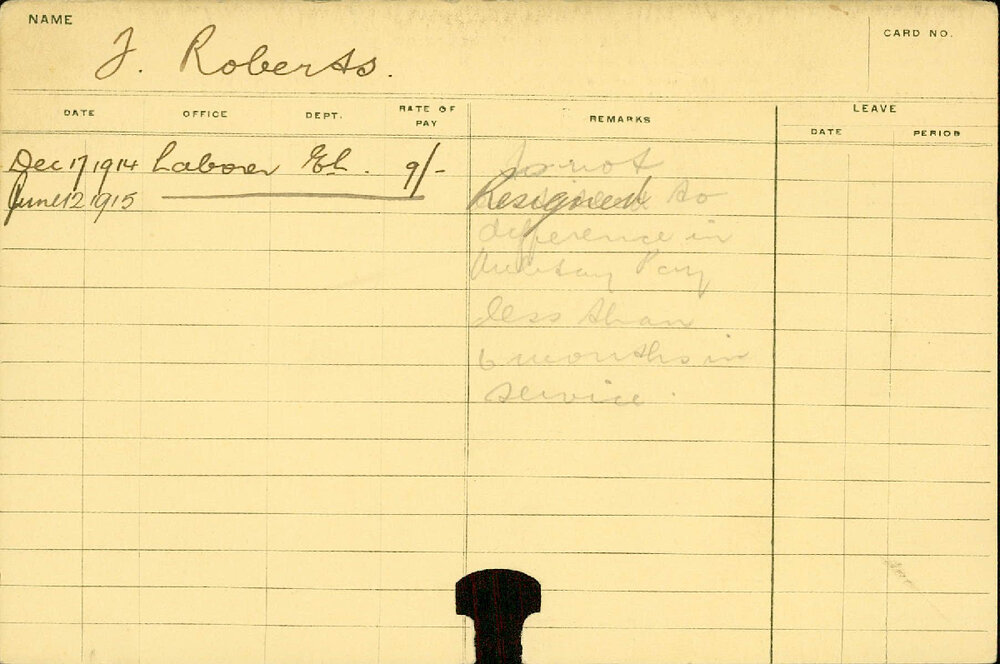 NAME
J. Roberts.
CARD NO.
DATE OFFICE DEPT. RATE OF PAY REMARKS LEAVE
DATE PERIOD
Dec 17 1914 Laborer El. 9/-
Is not
June 12 1915 Resigned to
difference in
Military Pay
less than
6 months in
service.